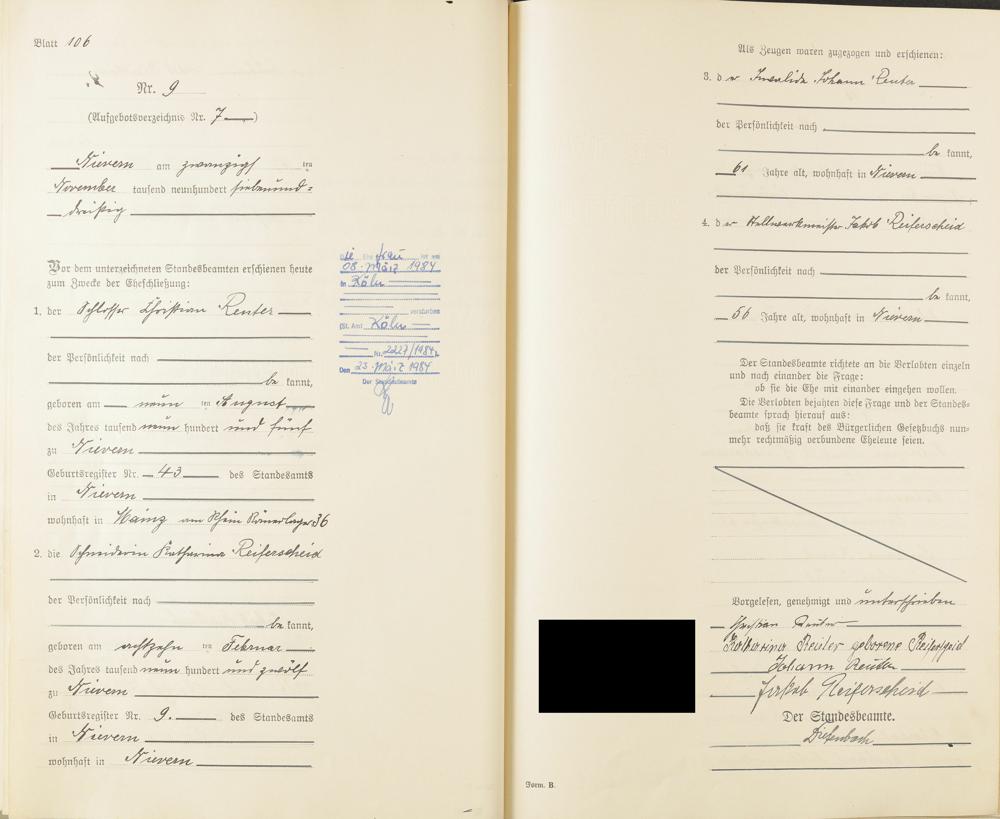 Blatt 106
Nr. 9
(Aufgebotsverzeichnis Nr. 7)
Nievern am zwanzigs ten
November tausend neunhundert siebenund-
dreißig
Vor dem unterzeichneten Standesbeamten erschienen heute
zum Zwecke der Eheschließung:
1. der Schlosser Christian Reuter
der Persönlichkeit nach
be kannt,
geboren am neun ten August
des Jahres tausend neun hundert und fünf
zu Nievern
Geburtsregister Nr. 43 des Standesamts
in Nievern
wohnhaft in Mainz am Rhein Römerlager 36
2. die Schneiderin Katharina Reiferscheid
der Persönlichkeit nach
be kannt,
geboren am achtzehn ten Februar
des Jahres tausend neun hundert und zwölf
zu Nievern
Geburtsregister Nr. 9. des Standesamts
in Nievern
wohnhaft in Nievern
Die Ehefrau ist am
08. März 1984
in Köln
verstorben
(St. Amt Köln
Nr. 2227/1984)
Den 23. März 1984
Der Standesbeamte
Als Zeugen waren zugezogen und erschienen:
3. d er Invalide Johann Reuter
der Persönlichkeit nach
be kannt,
61 Jahre alt, wohnhaft in Nievern
4. d er Stellwerkmeister Jakob Reiferscheid
der Persönlichkeit nach
be kannt,
56 Jahre alt, wohnhaft in Nievern
Der Standesbeamte richtete an die Verlobten einzeln
und nach einander die Frage:
ob sie die Ehe mit einander eingehen wollen.
Die Verlobten bejahten diese Frage und der Standes-
beamte sprach hierauf aus:
daß sie kraft des Bürgerlichen Gesetzbuchs nun-
mehr rechtmäßig verbundene Eheleute seien.
Vorgelesen, genehmigt und unterschrieben
Christian Reuter
Katharina Reuter geborene Reiferscheid
Johann Reuter
Jakob Reiferscheid
Der Standesbeamte.
Diefenbach
Form. B.